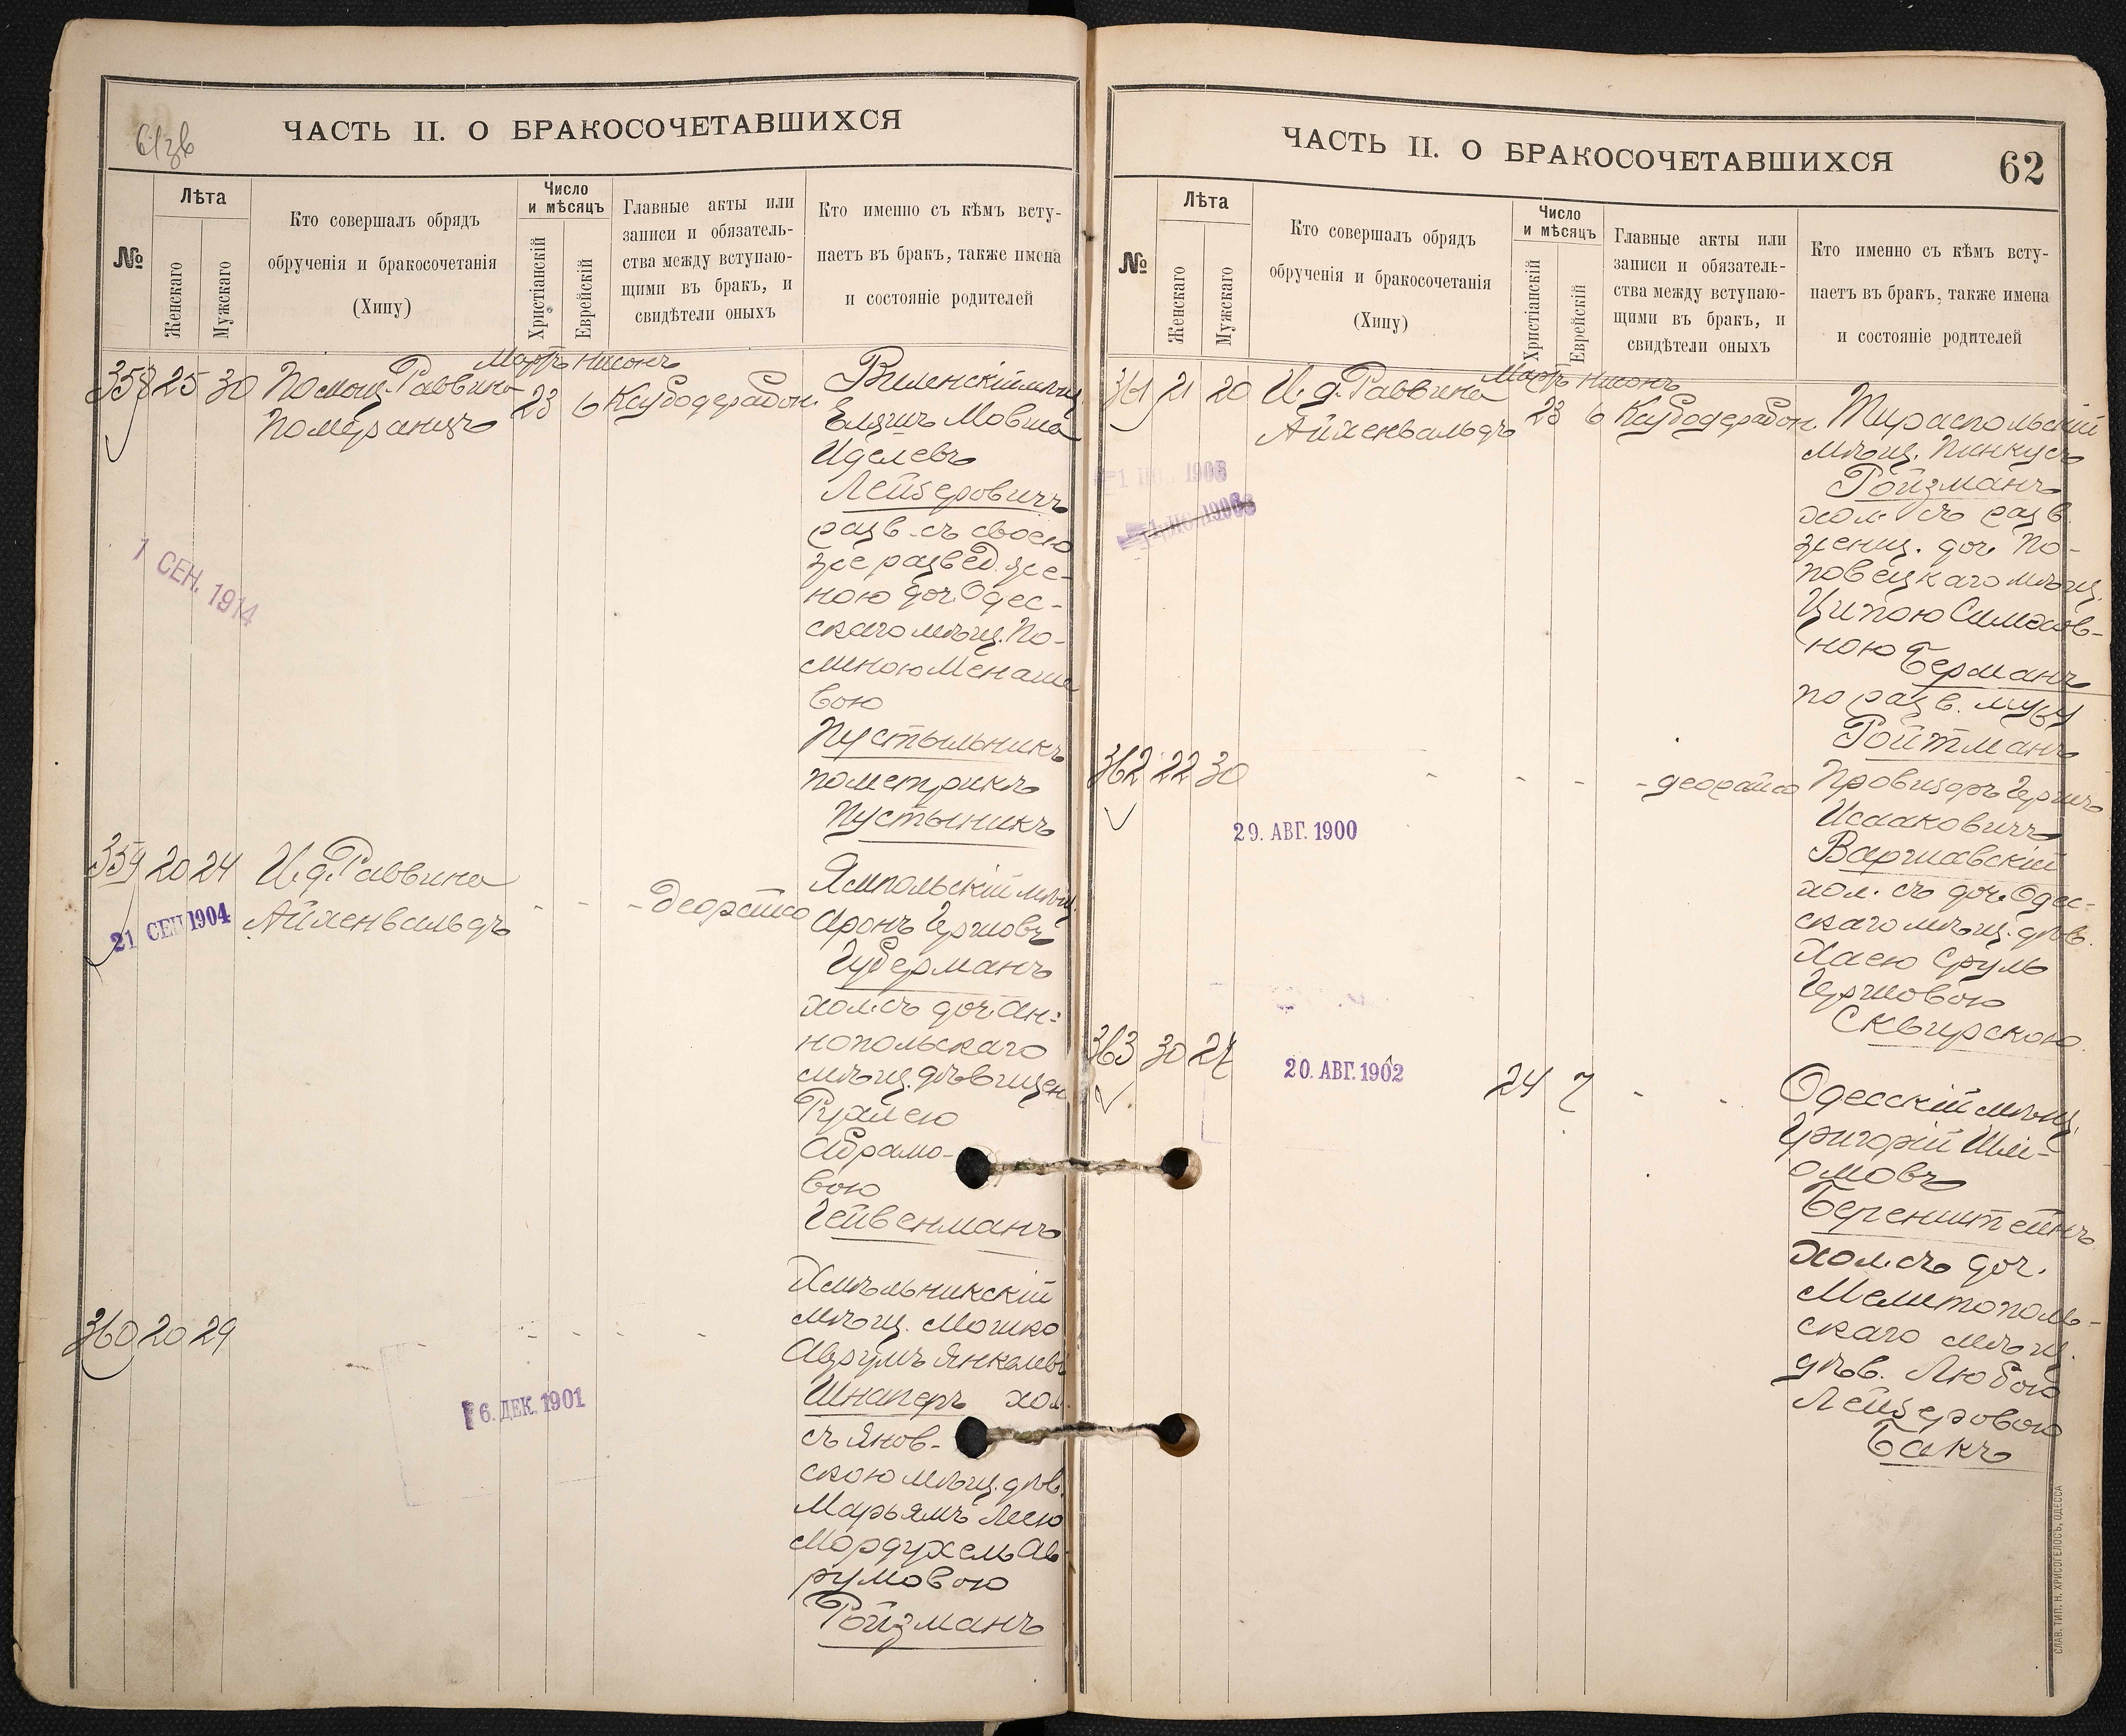 61 зв
ЧАСТЬ II. О БРАКОСОЧЕТАВШИХСЯ
№
Лѣта
Женскаго
Мужскаго
Кто совершалъ обрядъ
обрученія и бракосочетанія
(Хипу)
Число
и мѣсяцъ
Христіанскій
Еврейскій
Главные акты или
записи и обязатель-
ства между вступаю-
щими въ бракъ, и
свидѣтели оныхъ
Кто именно съ кѣмъ всту-
паетъ въ бракъ, также имена
и состояніе родителей
Мартъ Нисонъ
358 25 30 Помощ. Раввина
Померанцъ
23 6 Каубодерабон.
Виленскій мѣщ.
Еляшъ Мовша
Иделевъ
Лейзеровичъ
разв. съ своею
же развед. же-
ною доч. Одес-
скаго мѣщ. По-
Менаше
вою
Пустыльникъ
по метрикѣ
Пустыникъ
1 СЕН. 1914
359 20 24 И. д. Раввина
Айхенвальдъ
21 СЕН 1904
- - - Деорайсо
Ямпольскій мѣщ.
Аронъ Гершовъ
Губерманъ
хол. съ доч. Ан-
нопольскаго
мѣщ. дѣвицею
Рухлею
Абрамо-
вою
Гейвенманъ
360 20 29
- - - -
16. ДЕК. 1901
Хмѣльникскій
мѣщ. Мошко
Аврумъ Янкелевъ
Шнаперъ хол.
съ Янов-
скою мѣщ. дѣв.
Марьямъ Леею
Мордухель Ав-
румовою
Ройзманъ
ЧАСТЬ II. О БРАКОСОЧЕТАВШИХСЯ
62
№
Лѣта
Женскаго
Мужскаго
Кто совершалъ обрядъ
обрученія и бракосочетанія
(Хипу)
Число
и мѣсяцъ
Христіанскій
Еврейскій
Главные акты или
записи и обязатель-
ства между вступаю-
щими въ бракъ, и
свидѣтели оныхъ
Кто именно съ кѣмъ всту-
паетъ въ бракъ, также имена
и состояніе родителей
Мартъ Нисонъ
361 21 20 И. д. Раввина
Айхенвальдъ
23 6 Каубодерабон.
Тираспольскій
мѣщ. Пинкусъ
Ройзманъ
хол. съ разв.
женщ. доч. По-
повецкаго мѣщ.
Ципою Симхов-
ною Берманъ
по разв. мужу
Ройтманъ
362 22 30
- - - - деорайсо
29. АВГ. 1900
Провизоръ Гершъ
Исааковичъ
Варшавскій
хол. съ доч. Одес-
скаго мѣщ. дѣв.
Хаею Сруль
Гершовою
Сквирскою
363 30 27
20. АВГ. 1902
24 7 - -
Одесскій мѣщ.
Григорій Шлі-
омовъ
Беренштейнъ
хол. съ доч.
Мелитополь-
скаго мѣщ.
дѣв. Любою
Лейзеровою
Бакъ
СЛАВ. ТИП. Н. ХРИСОГЕЛОСЪ, ОДЕССА